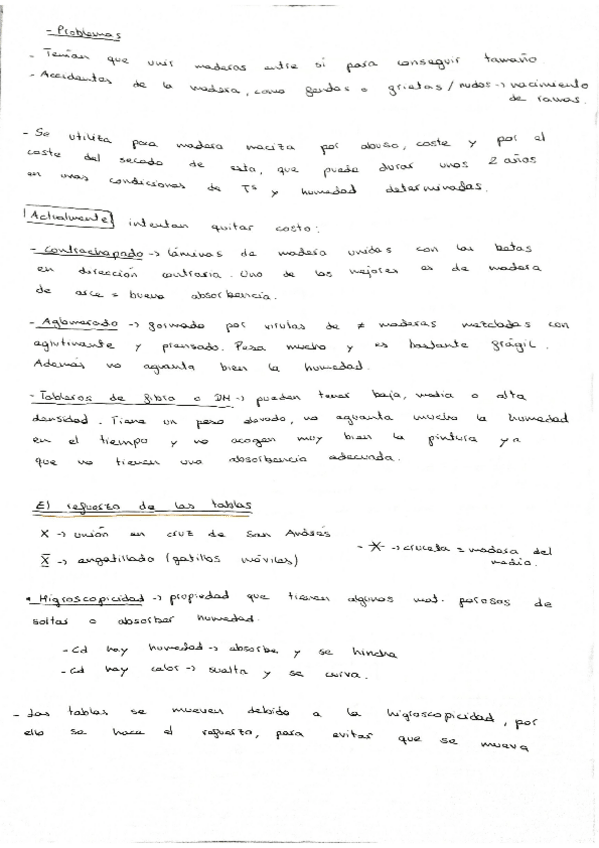 - Problemas
- Tenían que unir maderas entre si para conseguir tamaño.
- Accidentes de la madera, como fendas o grietas / nudos -> nacimiento
de ramas.
- Se utiliza poca madera maciza por abuso, coste y por el
coste del secado de esta, que puede durar unos 2 años
en unas condiciones de Tª y humedad determinadas.
Actualmente intentan quitar costo:
- Contrachapado -> láminas de madera unidas con las betas
en dirección contraria. Uno de los mejores es de madera
de arce = buena absorbencia.
- Aglomerado -> formado por virutas de ≠ maderas mezcladas con
aglutinante y prensado. Pesa mucho y es bastante frágil.
Además no aguanta bien la humedad.
- Tableros de fibra o DM -> pueden tener baja, media o alta
densidad. Tiene un peso elevado, no aguanta mucho la humedad
en el tiempo y no acogen muy bien la pintura ya
que no tienen una absorbencia adecuada.
El refuerzo de las tablas
X -> unión en cruz de San Andrés
X -> engatillado (gatillos móviles)
- X -> cruceta = madera del
medio.
• Higroscopicidad -> propiedad que tienen algunos mat. porosos de
soltar o absorber humedad.
- Cd hay humedad -> absorbe y se hincha
- Cd hay calor -> suelta y se curva.
- Las tablas se mueven debido a la higroscopicidad, por
ello se hace el refuerzo, para evitar que se mueva